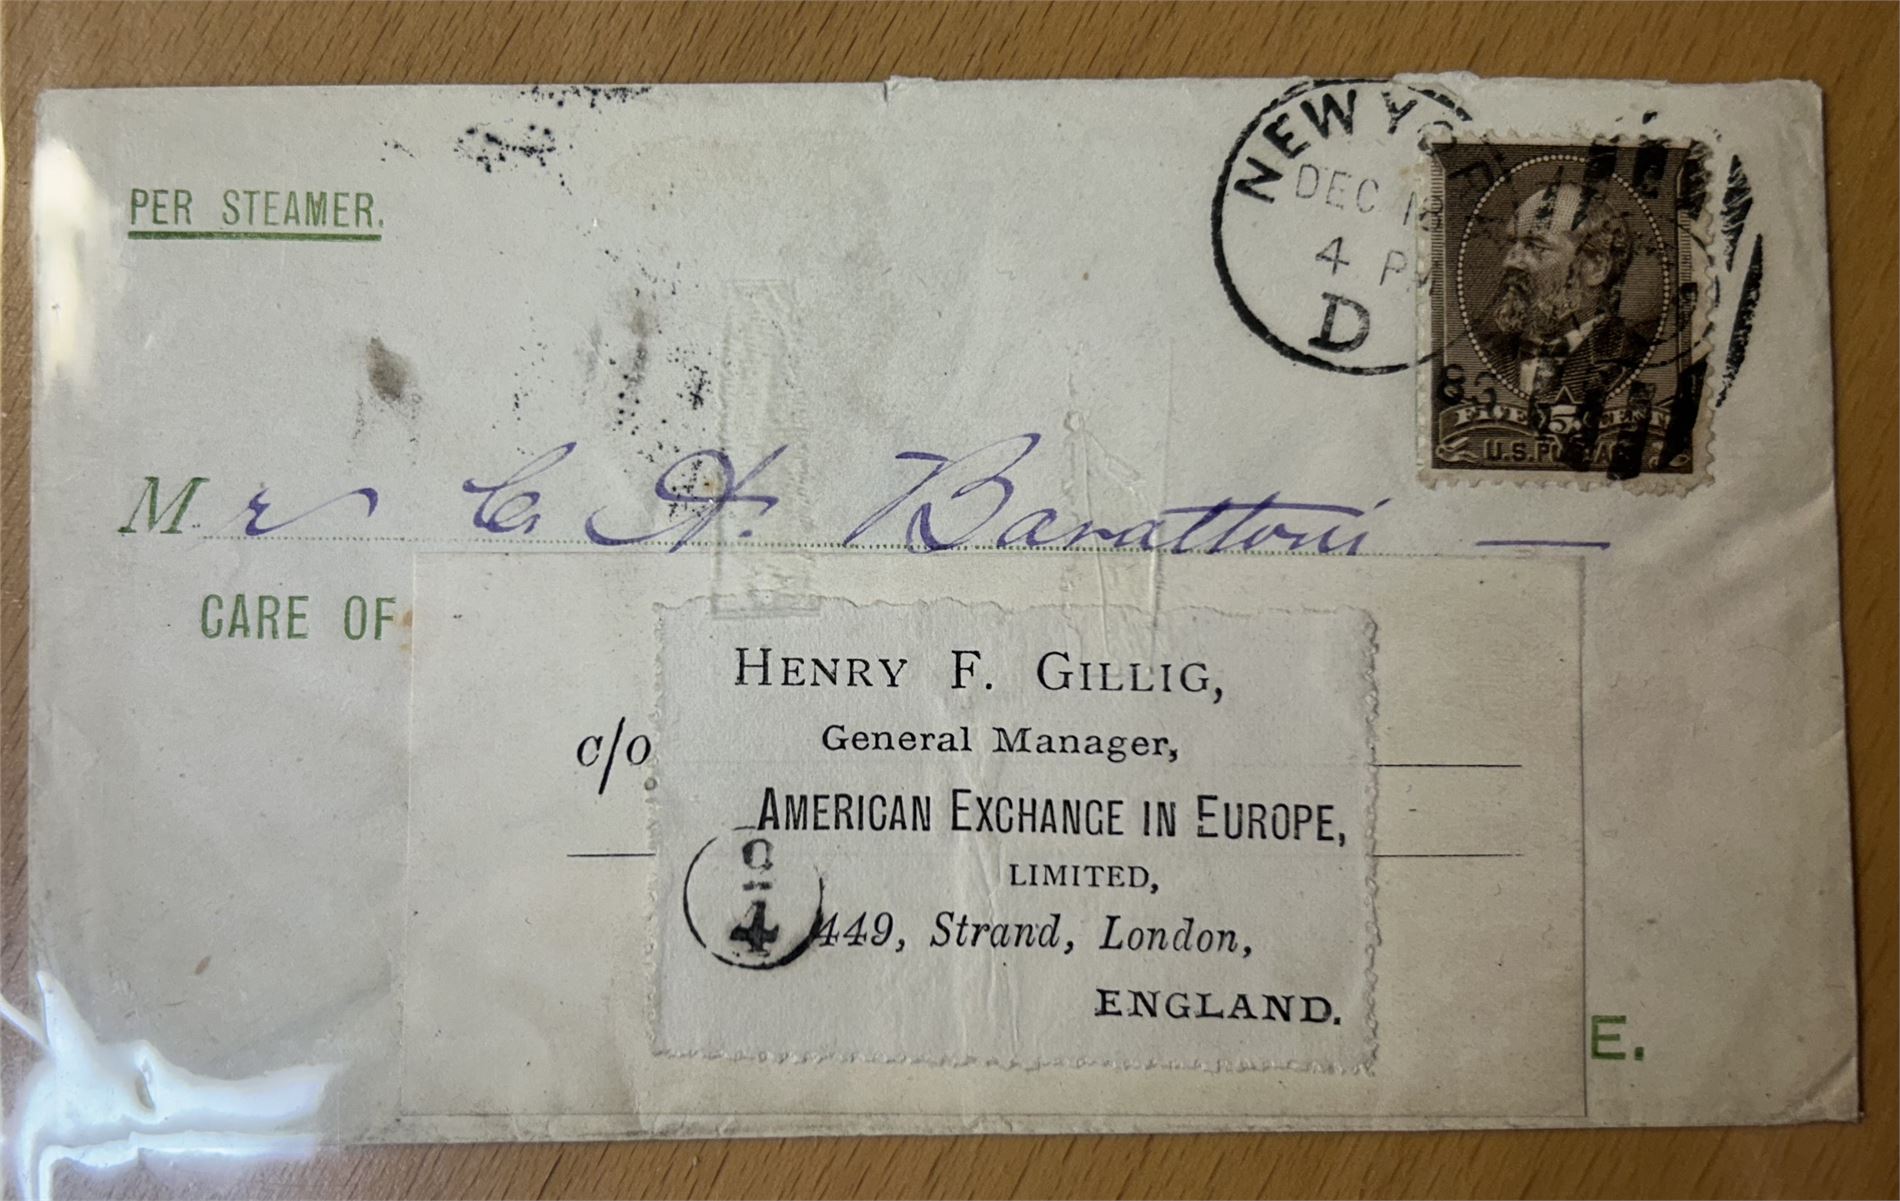 PER STEAMER.
NEW YORK
DEC
4 PM
D
83
FIVE 5 CENTS
U.S. POSTAGE
Mr C A. Barattoni
CARE OF
HENRY F. GILLIG,
General Manager,
c/o
AMERICAN EXCHANGE IN EUROPE,
LIMITED,
449, Strand, London,
ENGLAND.
4
E.